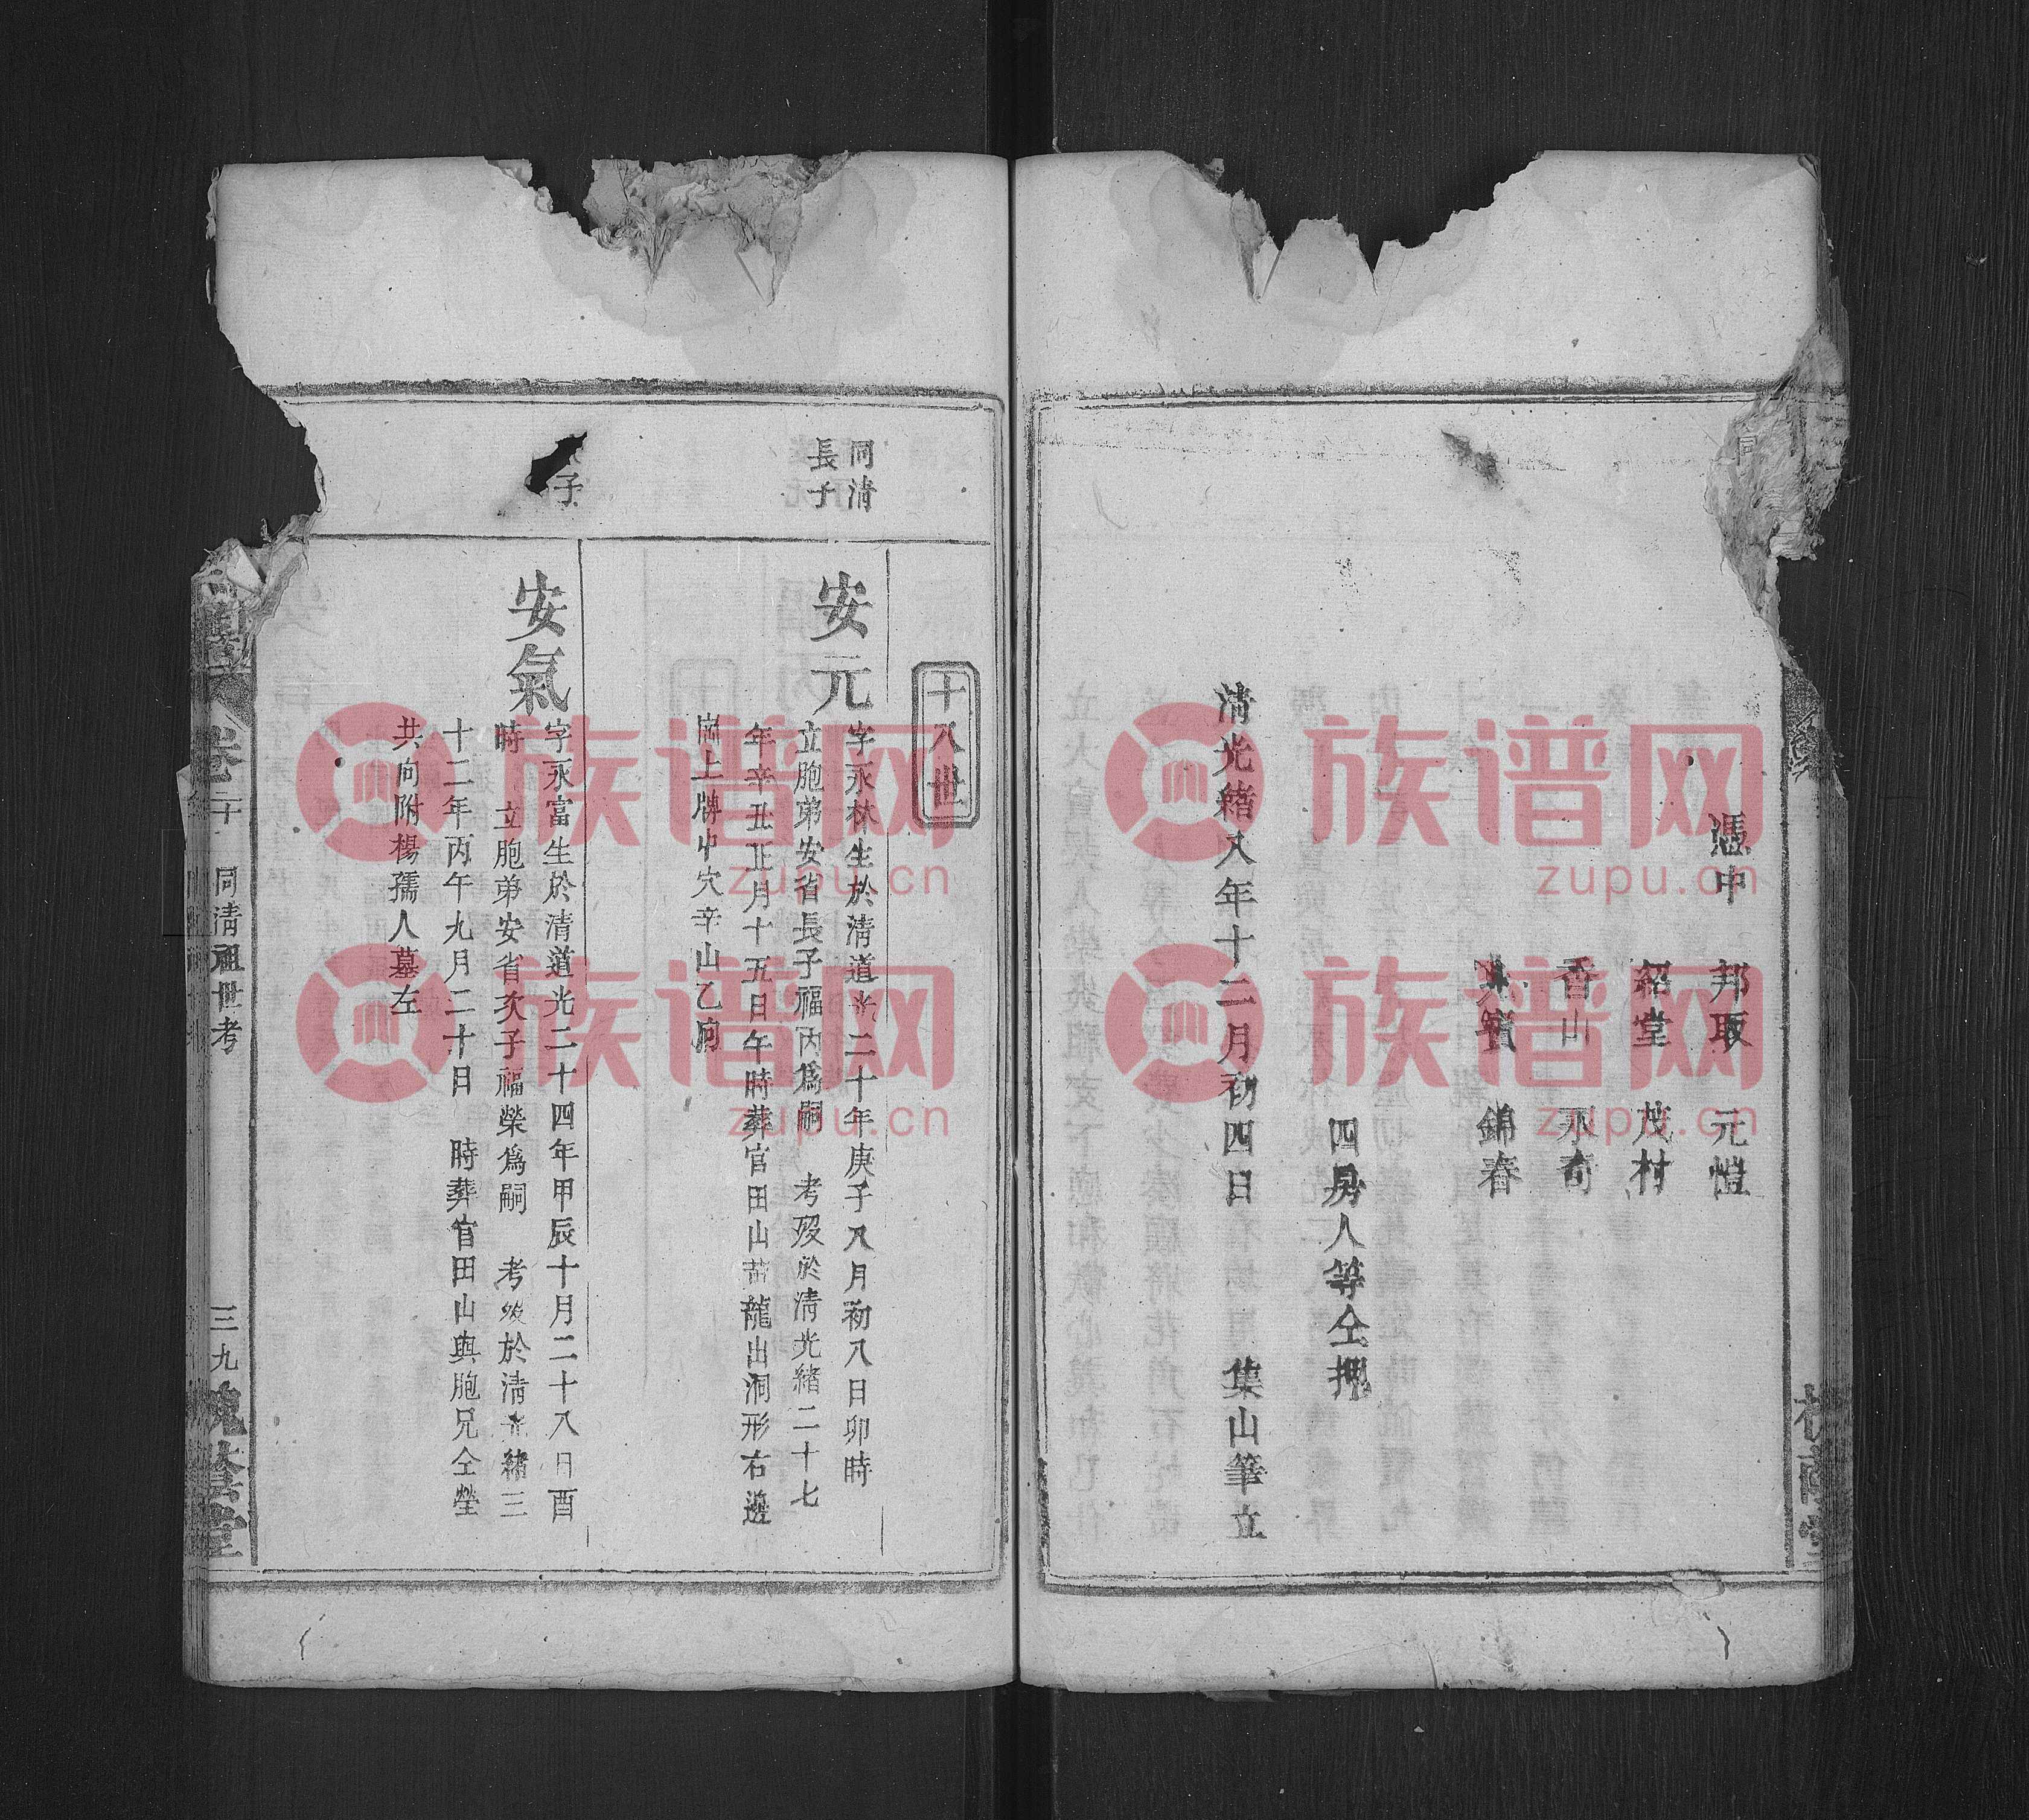 憑中　邦取　元愷
紹堂　茂村
香山　永奇
興賓　錦春
四房人等仝押
清光緒八年十二月初四日　集山筆立
槐蔭堂
十八世
同清
長子
安元
字永林生於清道光二十年庚子八月初八日卯時
立胞弟安省長子福丙爲嗣　考歿於清光緒二十七
年辛丑正月十五日午時葬官田山黃龍出洞形右邊
崗上牌中穴辛山乙向
子
安氣
字永富生於清道光二十四年甲辰十月二十八日酉
時　立胞弟安省次子福榮爲嗣　考歿於清光緒三
十二年丙午九月二十日　時葬官田山與胞兄仝塋
共向附楊孺人墓左
卷二十　同清祖世考　三九　槐蔭堂
族谱网
zupu.cn
族谱网
zupu.cn
族谱网
zupu.cn
族谱网
zupu.cn